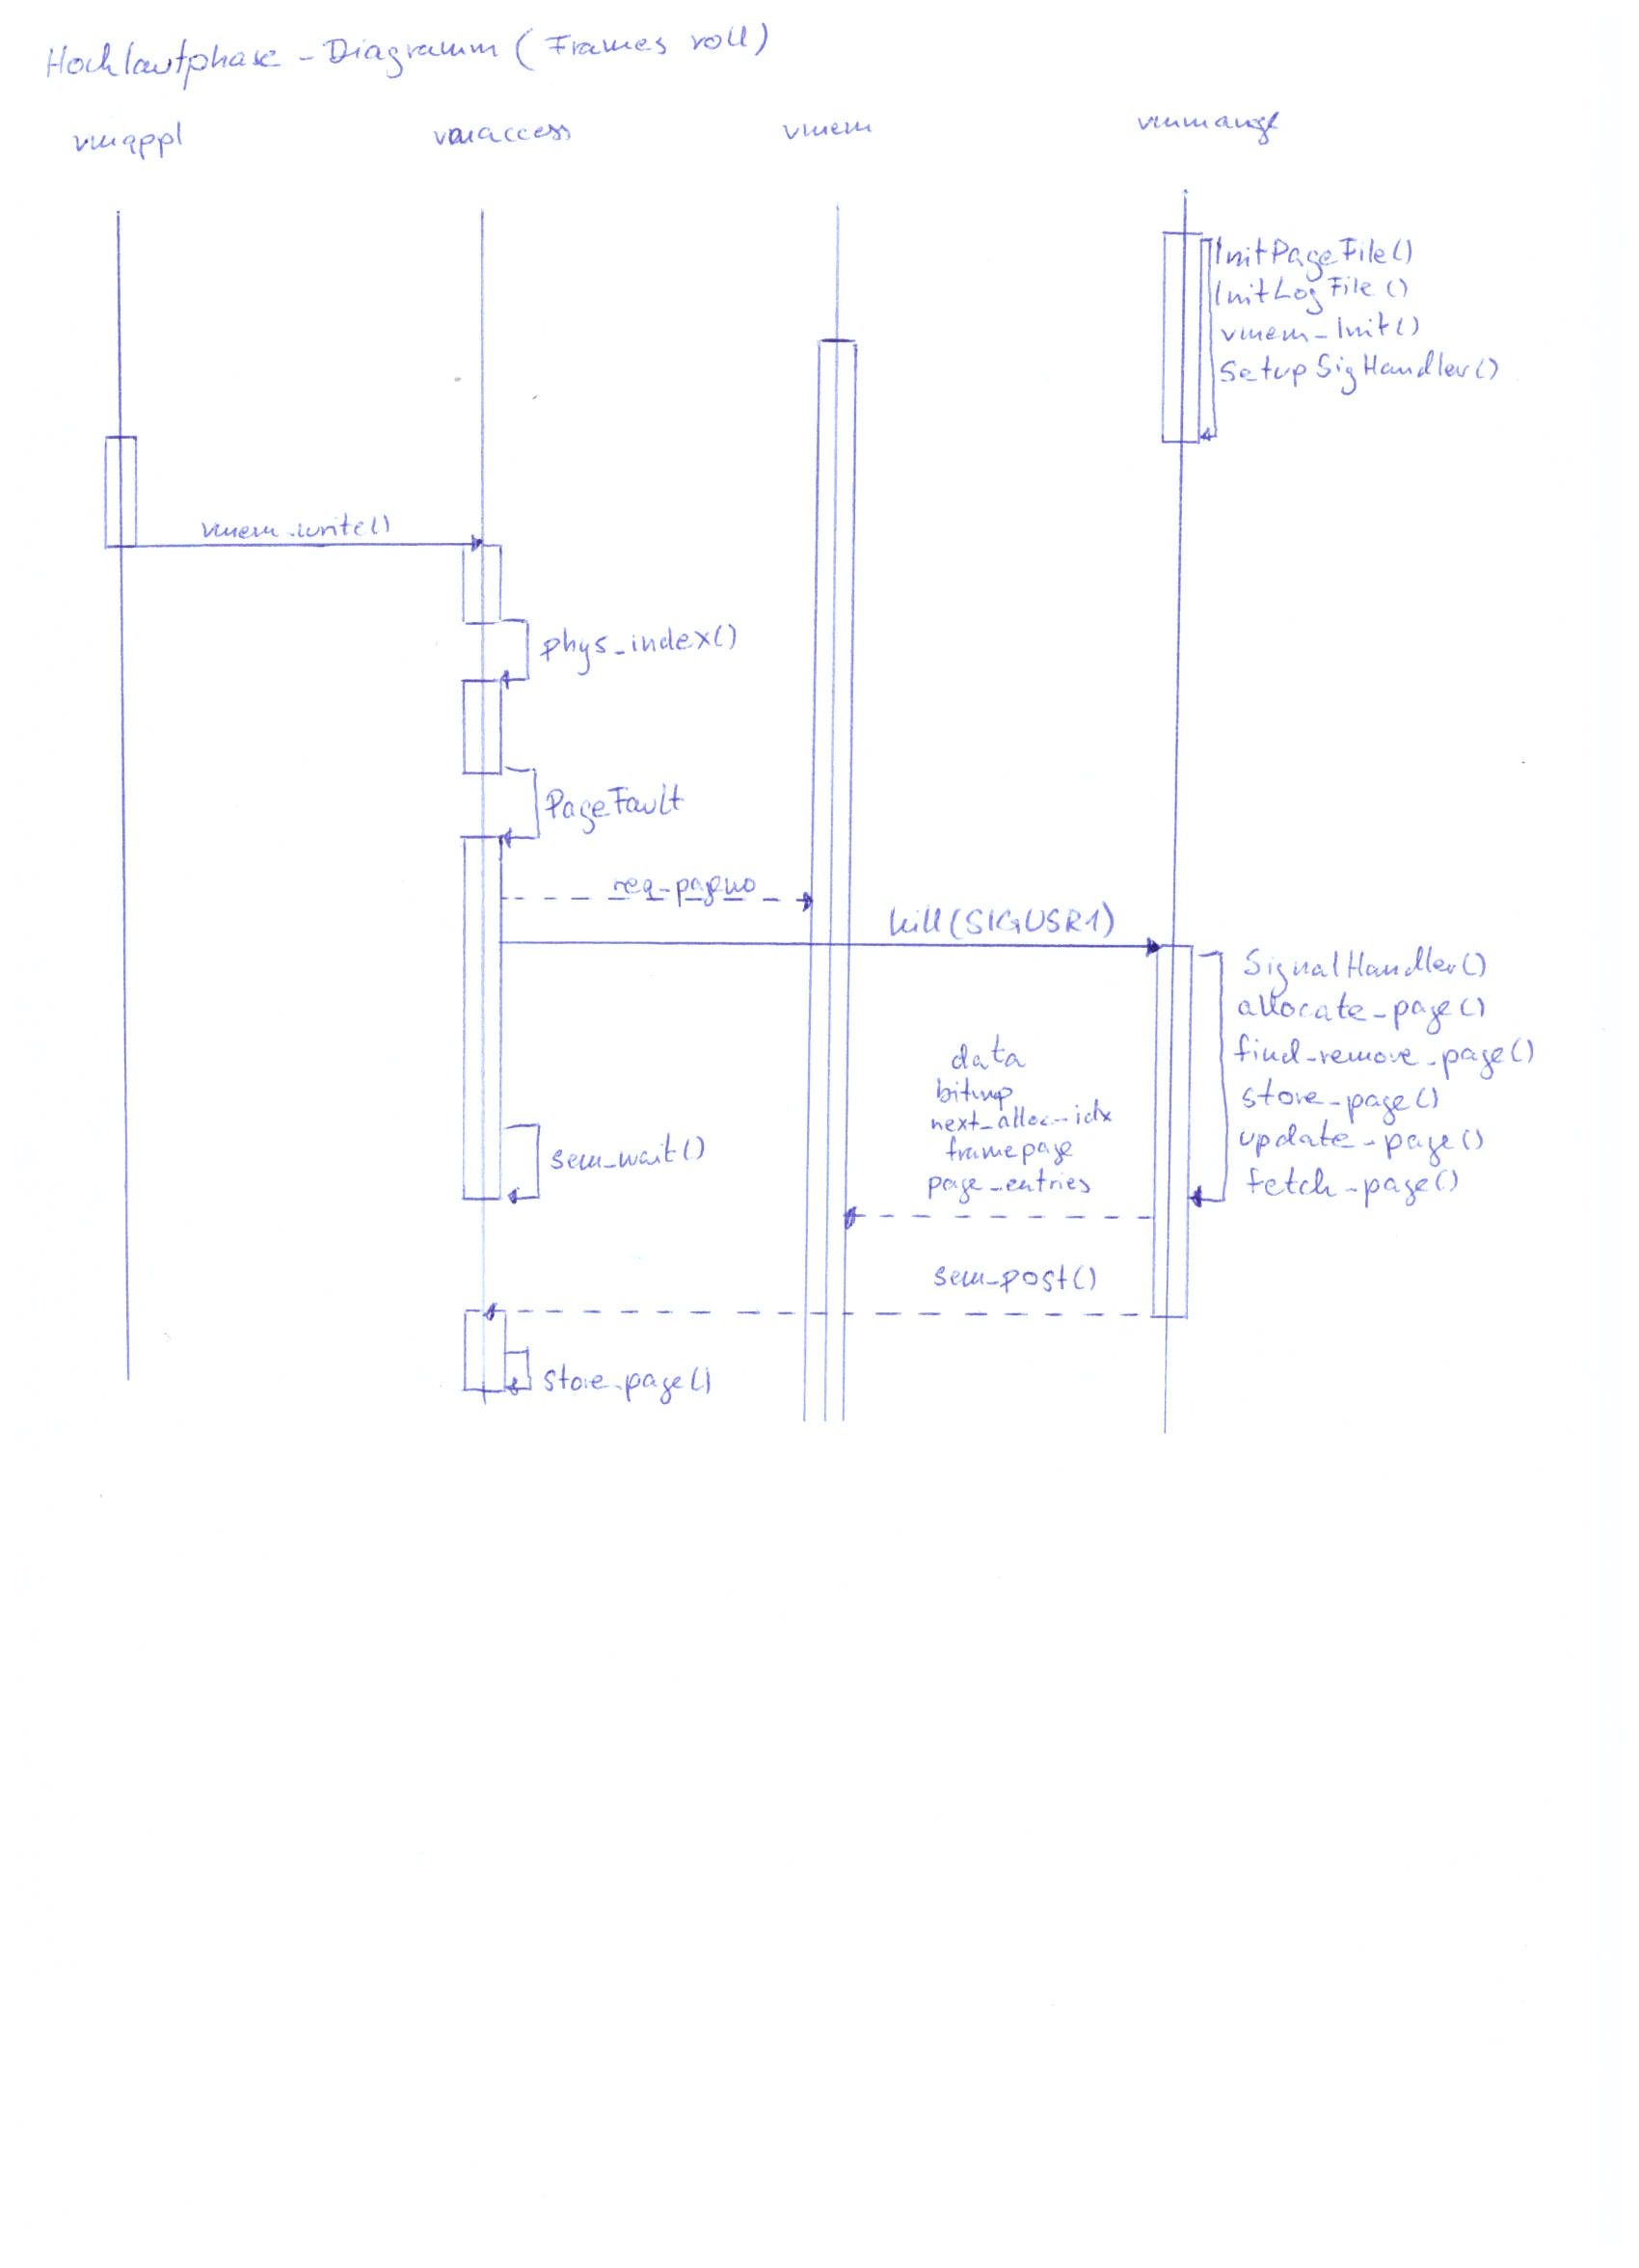 Hochlaufphase - Diagramm (Frames voll)
vmappl
vmaccess
vmem
vmmange
InitPageFile()
InitLogFile()
vmem_Init()
SetupSigHandler()
vmem_write()
phys_index()
PageFault
req_pageno
kill(SIGUSR1)
SignalHandler()
allocate_page()
find_remove_page()
store_page()
update_page()
fetch_page()
data
bitmap
next_alloc_idx
framepage
page_entries
sem_wait()
sem_post()
store_page()